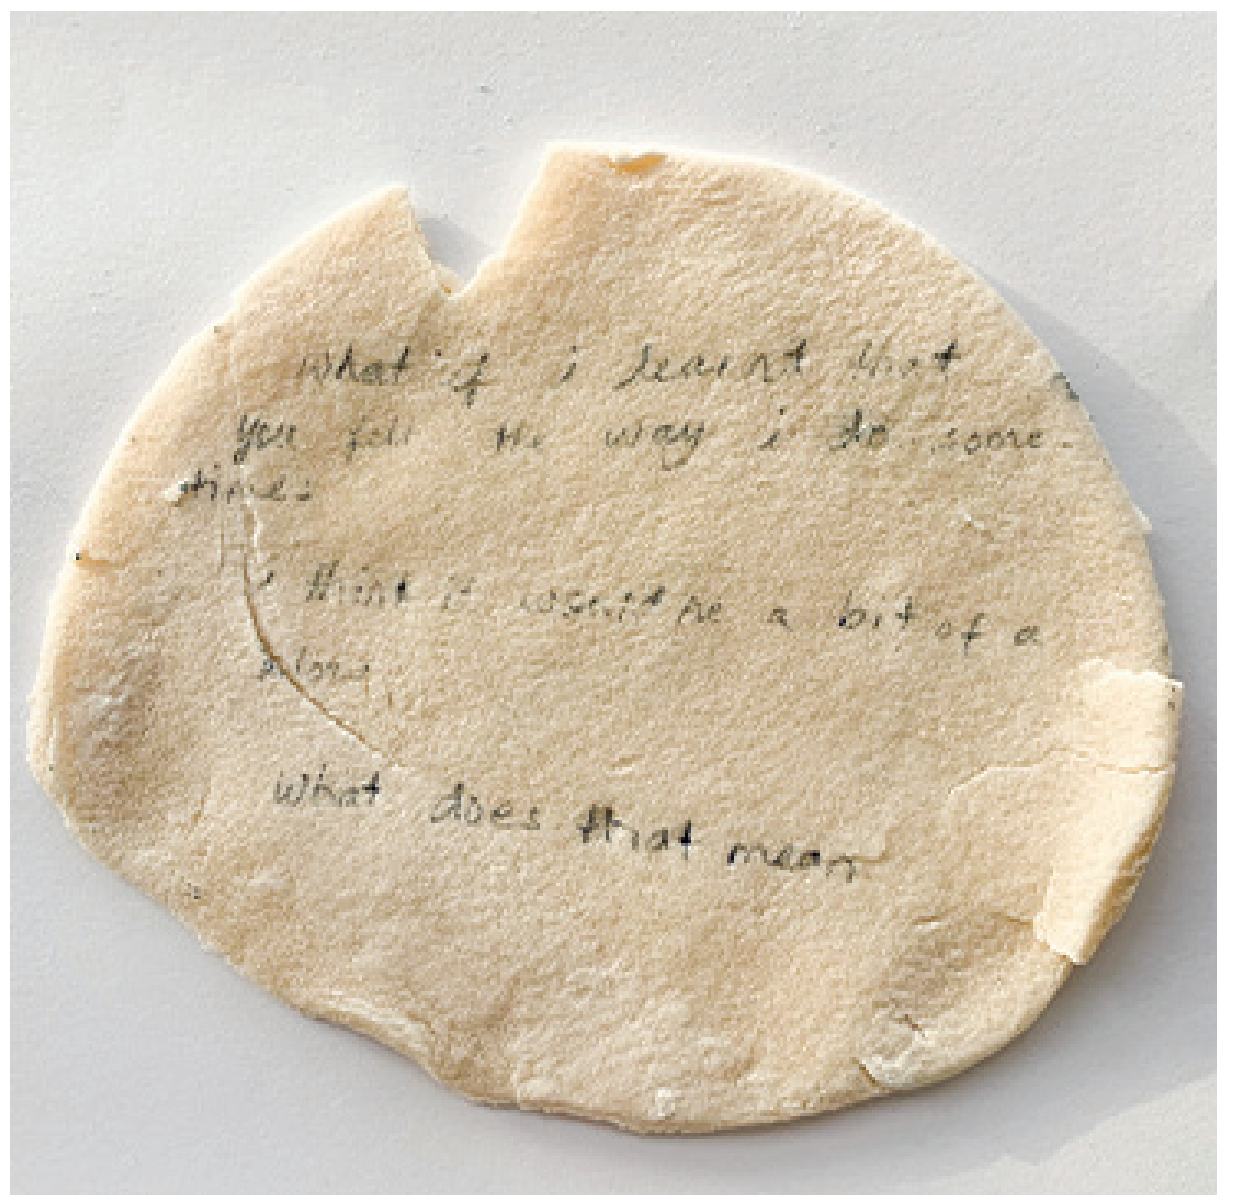 What if i learnt that
you felt the way i do some-
times
i think it would be a bit of a
What does that mean